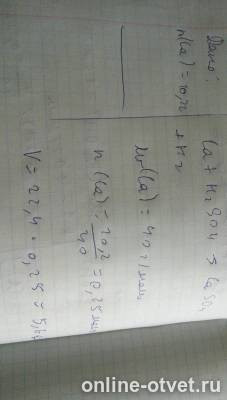 Дано:
n(Ca)=10,2г
Ca + H2SO4 → CaSO4
+ H2
M(Ca) = 40 г/моль
n(Ca) = 10,2/40 = 0,25 моль
V = 22,4 · 0,25 = 5,
online-otvet.ru